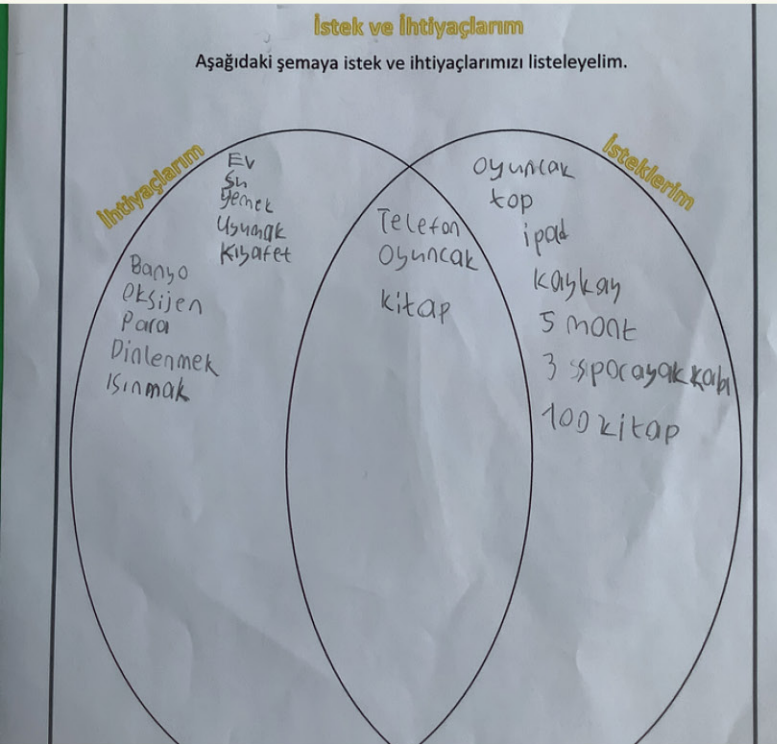 İstek ve İhtiyaçlarım
Aşağıdaki şemaya istek ve ihtiyaçlarımızı listeleyelim.
İhtiyaçlarım
Ev
Su
yemek
Uyumak
Kıyafet
Banyo
Oksijen
Para
Dinlenmek
Isınmak
Telefon
Oyuncak
kitap
İsteklerim
Oyuncak
top
ipad
kaykay
5 mont
3 sporayakkabı
100 kitap